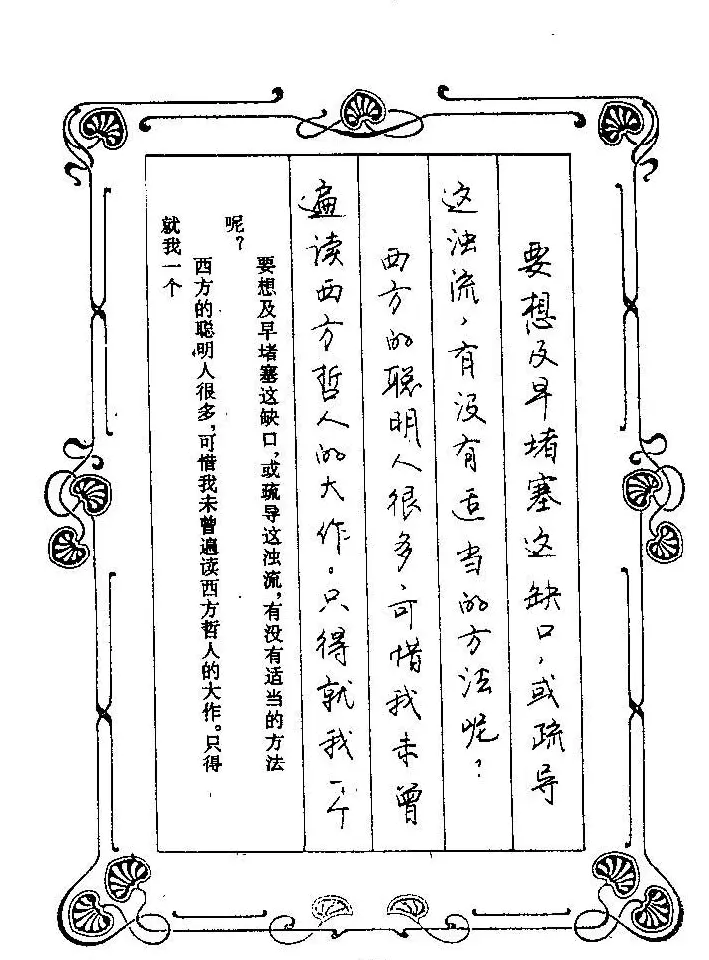 要想及早堵塞这缺口,或疏导
这浊流,有没有适当的方法呢?
西方的聪明人很多,可惜我未曾
遍读西方哲人的大作。只得就我一个
要想及早堵塞这缺口,或疏导这浊流,有没有适当的方法
呢?
西方的聪明人很多,可惜我未曾遍读西方哲人的大作。只得
就我一个